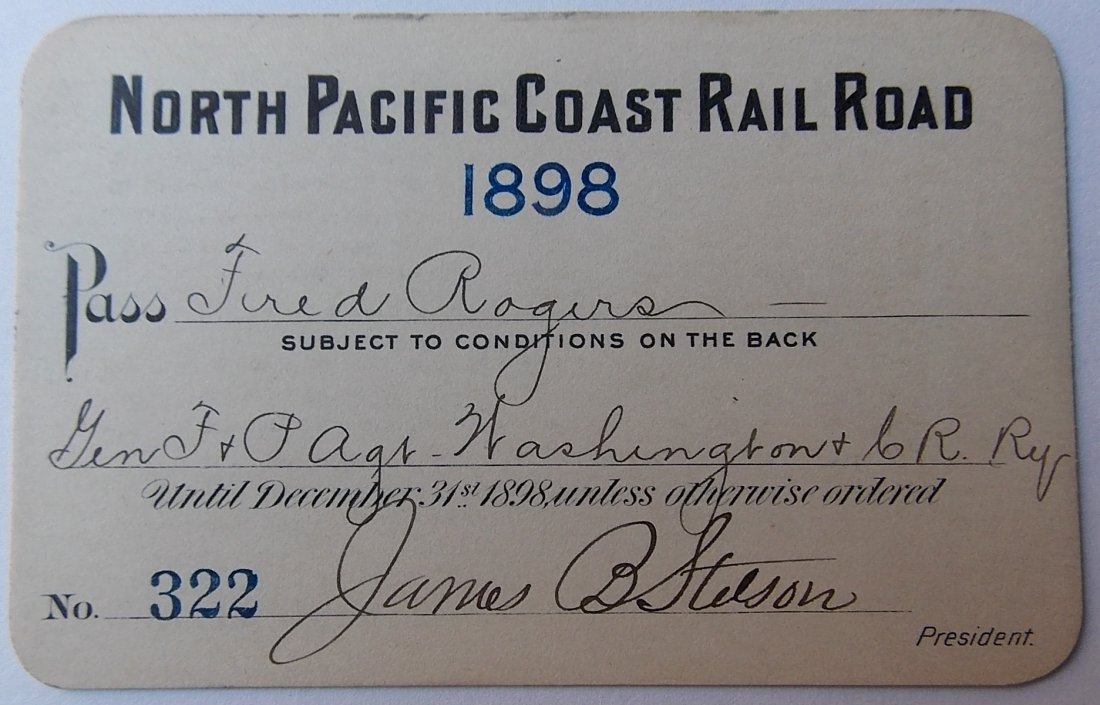 NORTH PACIFIC COAST RAIL ROAD
1898
Pass Fred Rogers —
SUBJECT TO CONDITIONS ON THE BACK
Gen F & P Agt - Washington & C R. Ry
Until December 31st 1898, unless otherwise ordered
No. 322 James B Stetson
President.